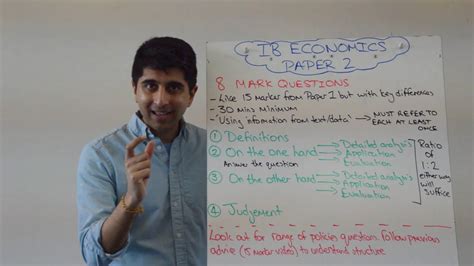 IB ECONOMICS
PAPER 2
8 MARK QUESTIONS
- Like 15 marker from Paper 1 but with key differences
- 30 mins minimum
- 'Using information from text/data' → MUST REFER TO EACH AT LEAST ONCE
① Definitions
② On the one hand → Detailed analysis
Answer the question → Application
→ Evaluation
③ On the other hand → Detailed analysis
→ Application
→ Evaluation
Ratio of 1:2 either way will suffice
④ Judgement
Look out for range of policies question. Follow previous
advice (15 marker video) to understand structure